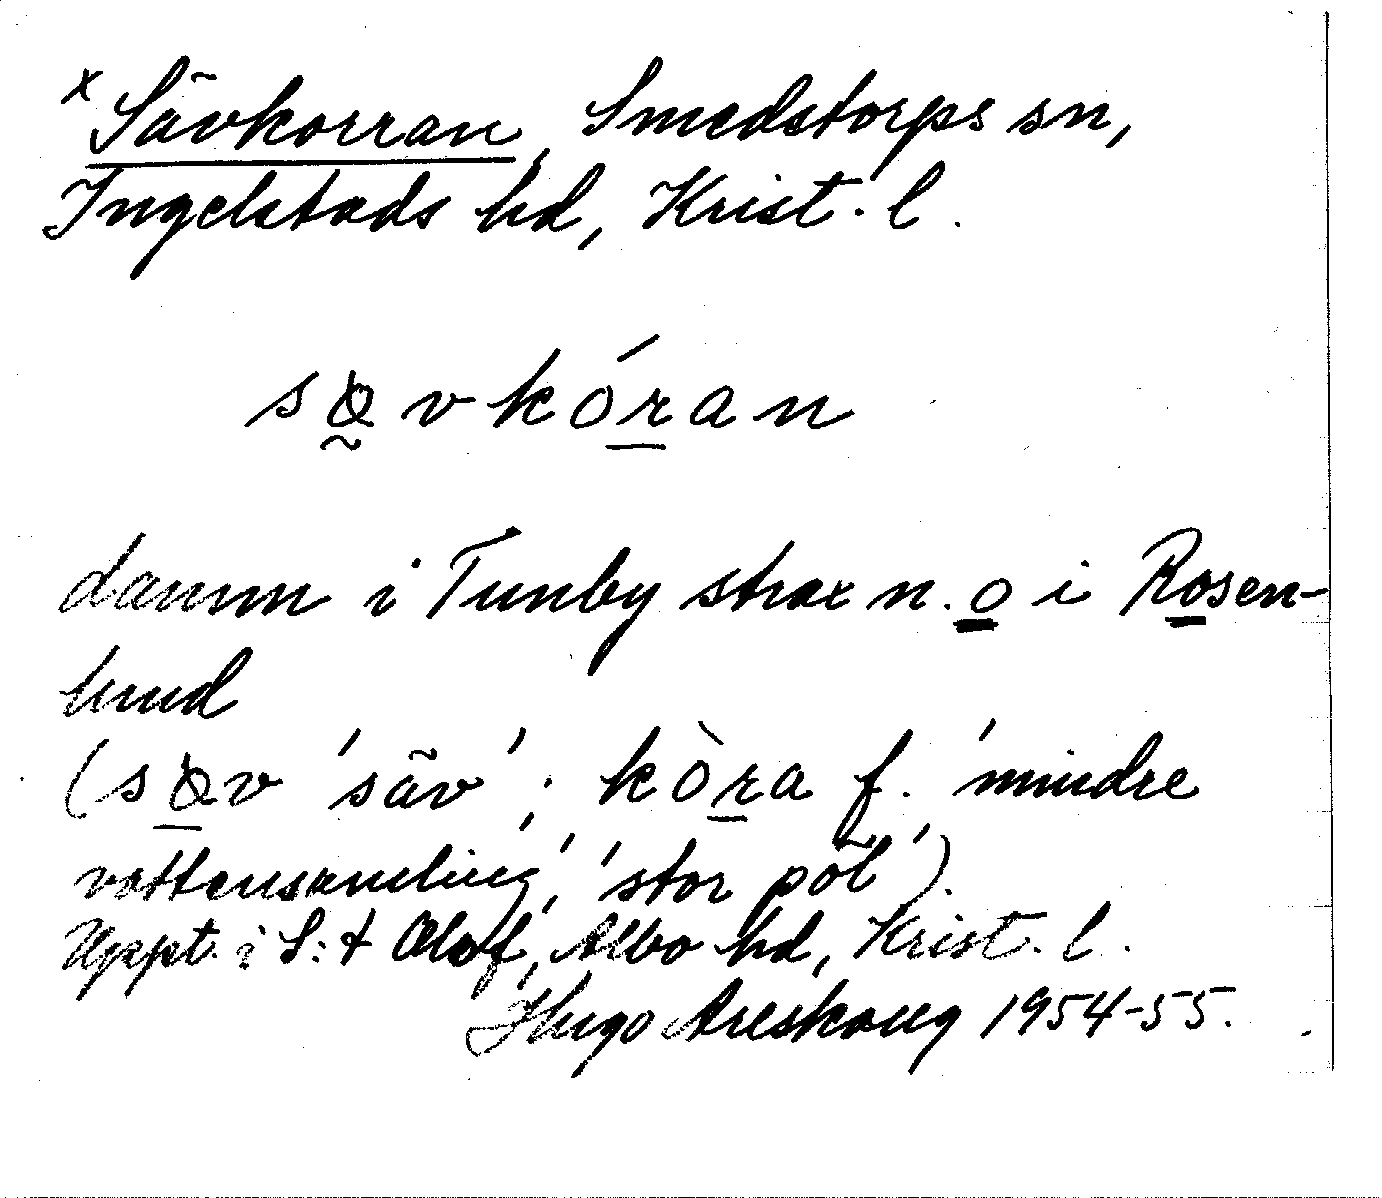 x Sävkorran, Smedstorps sn,
Ingelstads hd, Krist. l.
sœvkóran
damm i Tunby strax n. o i Rosen-
lund
(sœv 'säv'; kòra f. 'mindre
vattensamling', 'stor pöl').
Uppt. i S:t Olof, Albo hd, Krist. l.
Hugo Areskoug 1954-55.